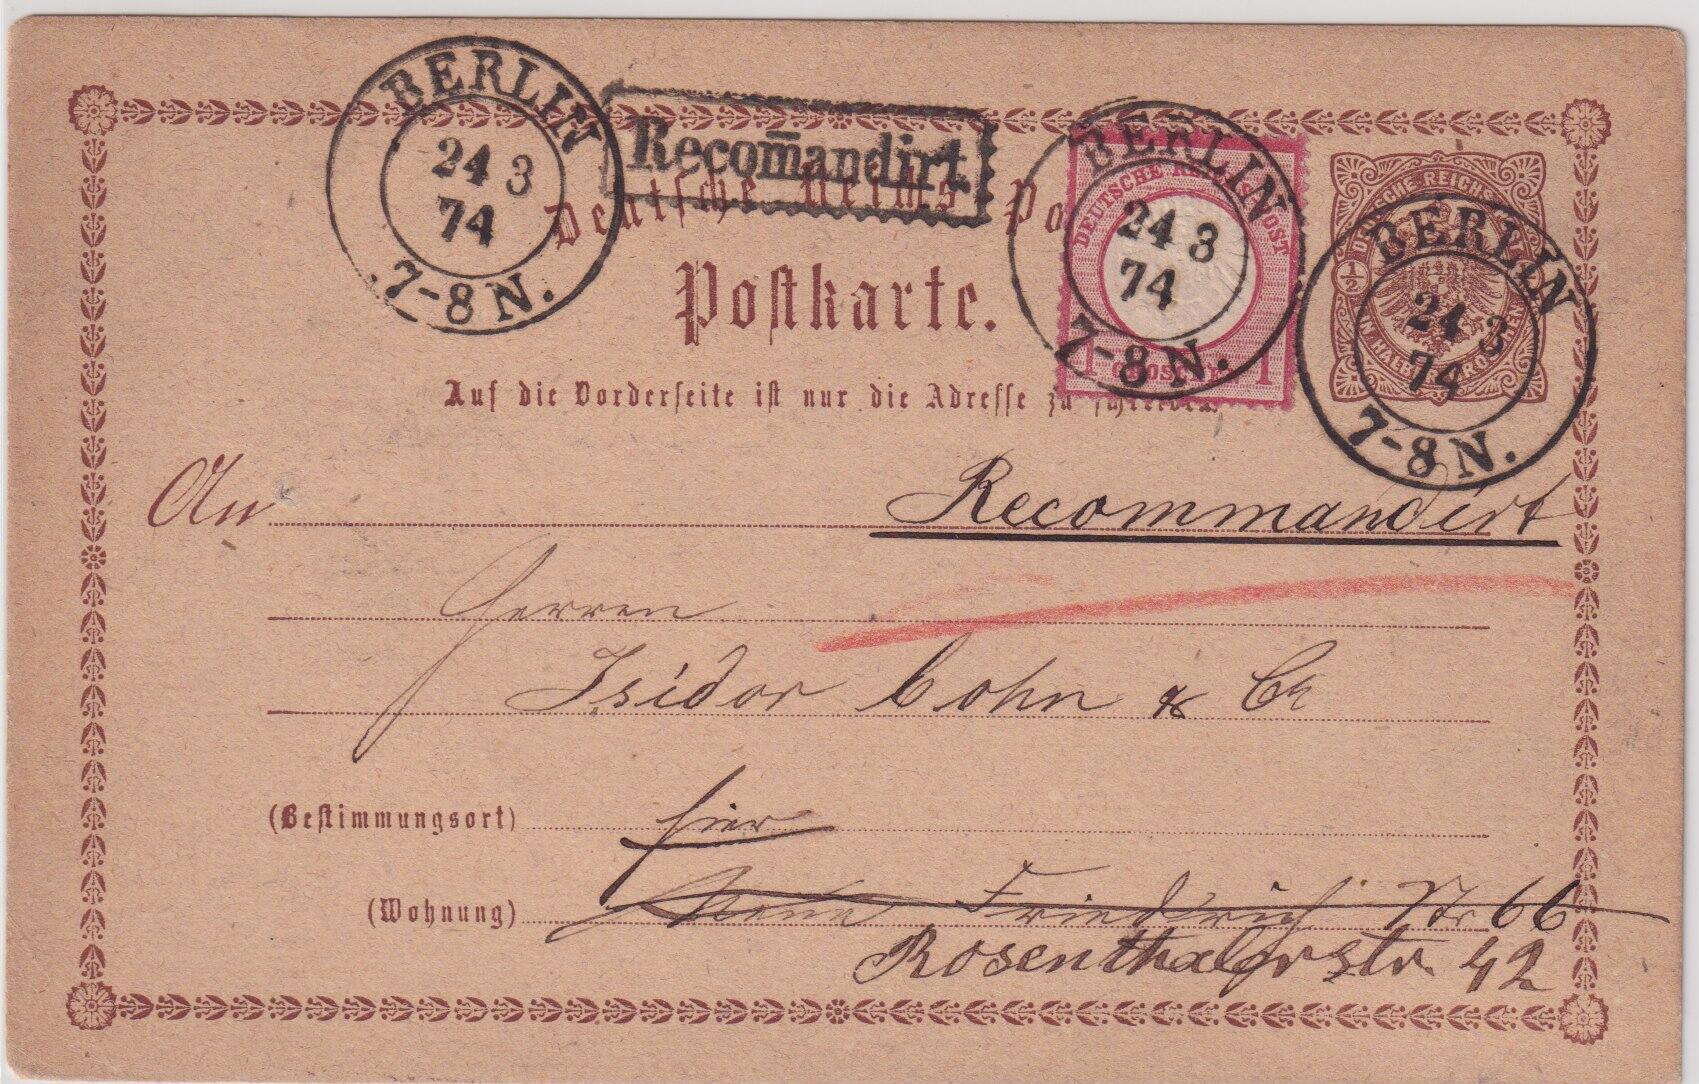 BERLIN
24 3
74
7-8 N.
Recom̄andirt.
BERLIN
24 3
74
7-8 N.
DEUTSCHE REICHS POST
1 GROSCHEN 1
DEUTSCHE REICHS
1/2
EIN HALBER GROSCHEN
BERLIN
24 3
74
7-8 N.
Deutsche Reichs-Po
Postkarte.
Auf die Vorderseite ist nur die Adresse zu schreiben.
An Recommandirt
Herren
Isidor Cohn & Co
(Bestimmungsort) hier
(Wohnung) Neue Friedrich Str 66
Rosenthalerstr. 42